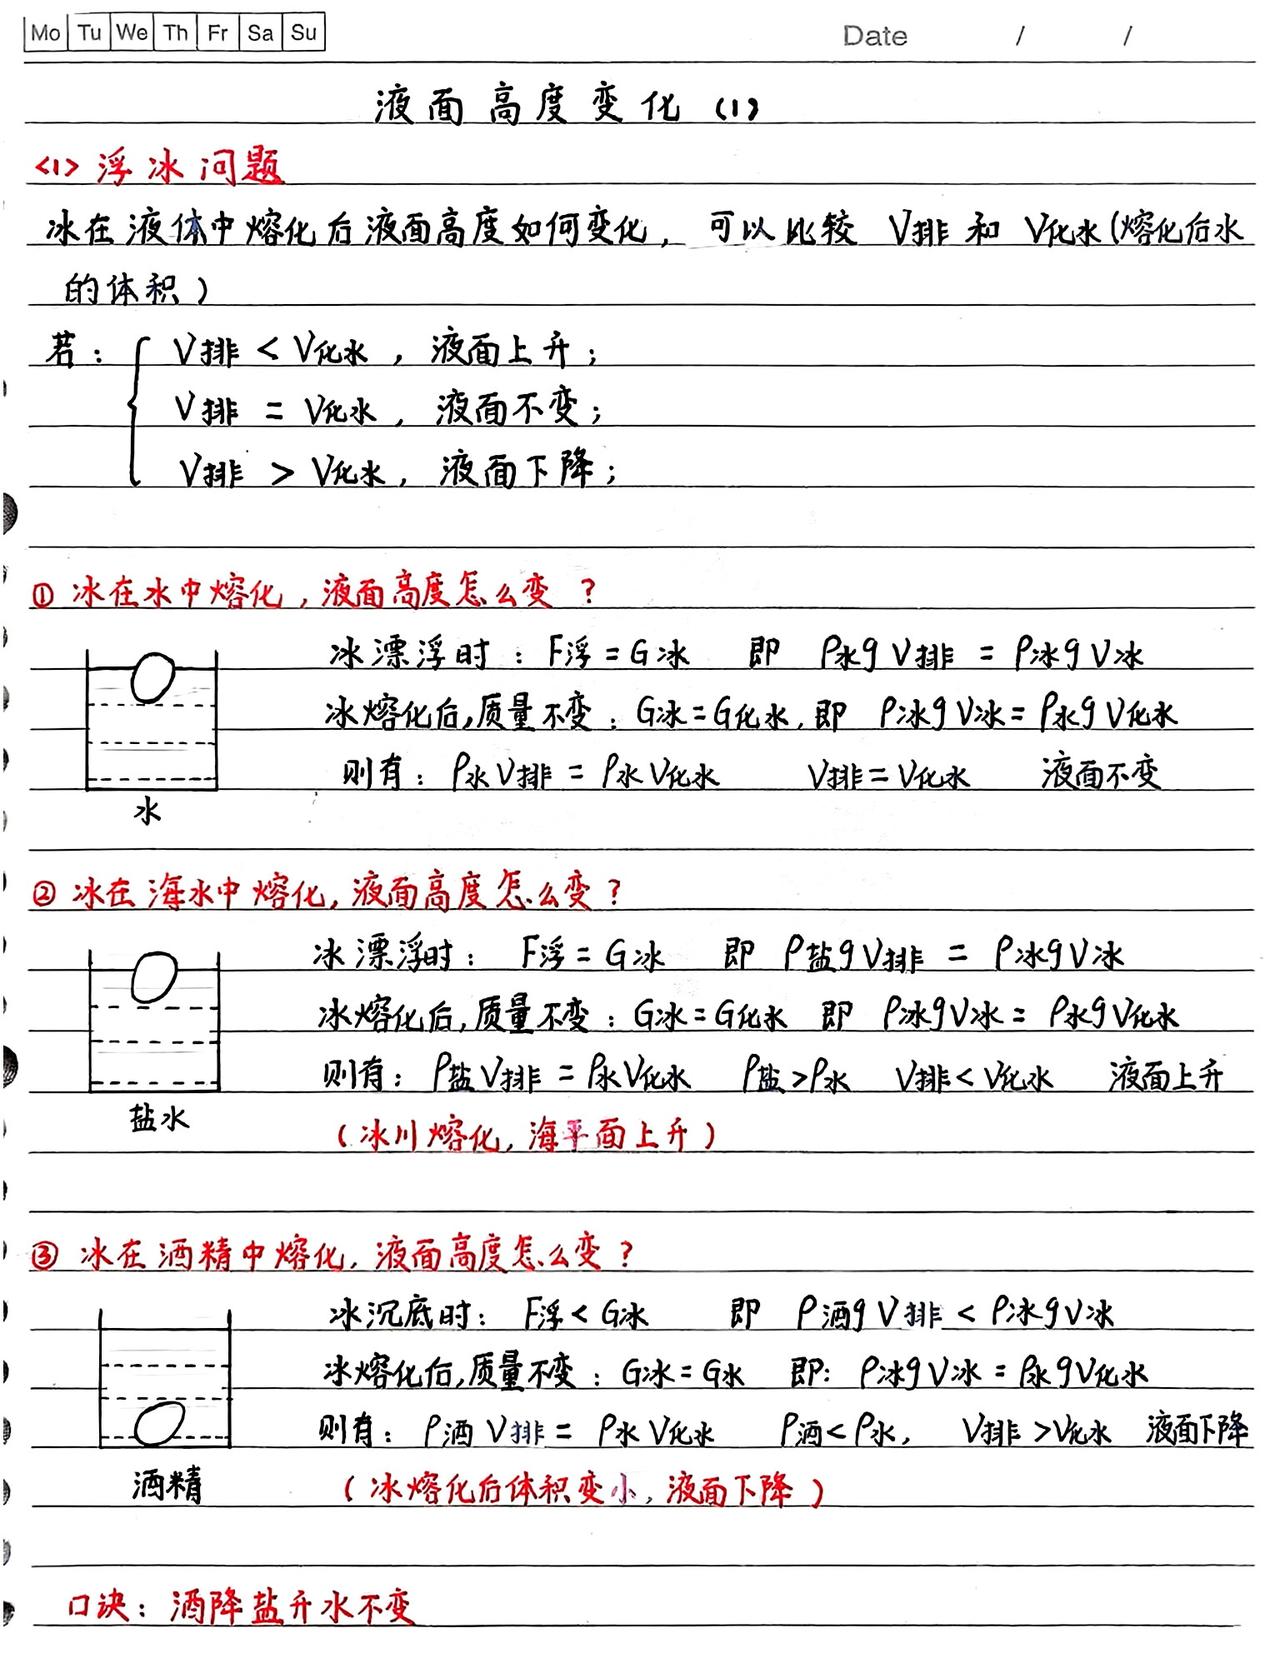 Mo Tu We Th Fr Sa Su Date / /
液面高度变化（1）
<1> 浮冰问题
冰在液体中熔化后液面高度如何变化，可以比较 V排 和 V化水（熔化后水
的体积）
若：{ V排 < V化水，液面上升；
V排 = V化水，液面不变；
V排 > V化水，液面下降；
① 冰在水中熔化，液面高度怎么变？
冰漂浮时：F浮 = G冰 即 ρ水gV排 = ρ冰gV冰
冰熔化后,质量不变：G冰 = G化水, 即 ρ冰gV冰 = ρ水gV化水
则有：ρ水V排 = ρ水V化水 V排 = V化水 液面不变
水
② 冰在海水中熔化，液面高度怎么变？
冰漂浮时：F浮 = G冰 即 ρ盐gV排 = ρ冰gV冰
冰熔化后,质量不变：G冰 = G化水 即 ρ冰gV冰 = ρ水gV化水
则有：ρ盐V排 = ρ水V化水 ρ盐 > ρ水 V排 < V化水 液面上升
盐水
（冰川熔化，海平面上升）
③ 冰在酒精中熔化，液面高度怎么变？
冰沉底时：F浮 < G冰 即 ρ酒gV排 < ρ冰gV冰
冰熔化后,质量不变：G冰 = G水 即：ρ冰gV冰 = ρ水gV化水
则有：ρ酒V排 = ρ水V化水 ρ酒 < ρ水， V排 > V化水 液面下降
酒精
（冰熔化后体积变小，液面下降）
口诀：酒降盐升水不变